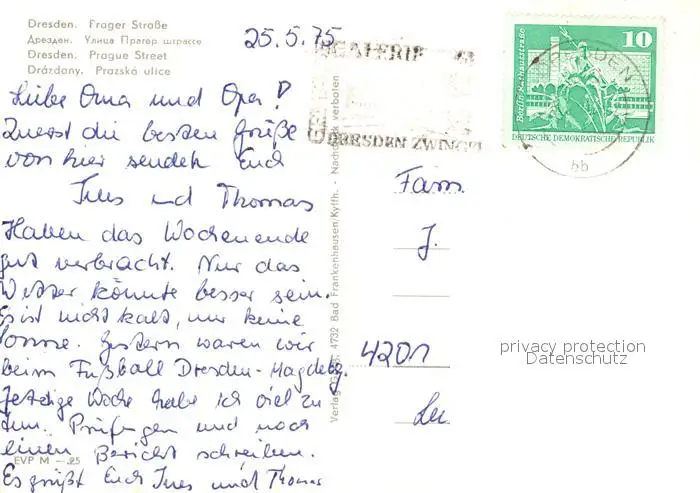 Dresden. Prager Straße
Дрезден. Улица Прагер штрассе
Dresden. Prague Street
Drázdany. Prazská ulice
25.5.75
GALERIE
DRESDEN ZWINGER
DRESDEN
bb
10
Berlin, Rathausstraße
DEUTSCHE DEMOKRATISCHE REPUBLIK
Liebe Oma und Opa!
Zuerst die besten Grüße
von hier senden Euch
Ines und Thomas
Haben das Wochenende
gut verbracht. Nur das
Wetter könnte besser sein.
Es ist nicht kalt, nur keine
Sonne. Gestern waren wir
beim Fußball Dresden-Magdebg.
Jetzige Woche habe ich viel zu
tun. Prüfungen und noch
einen Bericht schreiben.
Es grüßt Euch Ines und Thomas
EVP M –.25
4732 Bad Frankenhausen/Kyffh. - Nachdruck verboten
Fam.
J.
4201
privacy protection
Datenschutz